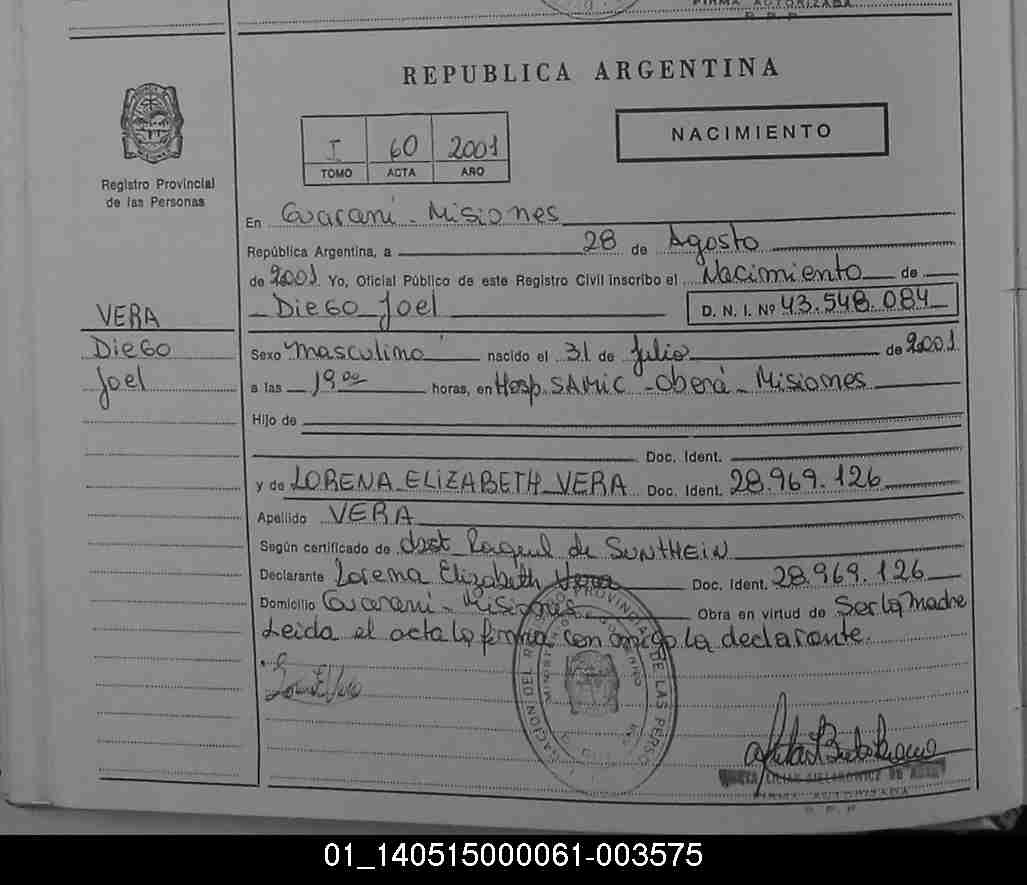 FIRMA AUTORIZADA
R.P.P.
REPUBLICA ARGENTINA
NACIMIENTO
I 60 2001
TOMO ACTA AÑO
Registro Provincial
de las Personas
En Guaraní - Misiones
República Argentina, a 28 de Agosto
de 2001 Yo, Oficial Público de este Registro Civil inscribo el Nacimiento de
Diego Joel D. N. I. Nº 43.548.084
VERA
Diego
Joel
Sexo Masculino nacido el 31 de Julio de 2001
a las 19 00 horas, en Hosp. SAMIC - Oberá - Misiones
Hijo de
Doc. Ident.
y de LORENA ELIZABETH VERA Doc. Ident. 28.969.126
Apellido VERA
Según certificado de obst. Raquel de SUNTHEIN
Declarante Lorena Elizabeth Vera Doc. Ident. 28.969.126
Domicilio Guaraní - Misiones Obra en virtud de Ser la Madre
Leida el acta la firma con migo la declarante.
FIRMA AUTORIZADA
R.P.P.
01_140515000061-003575